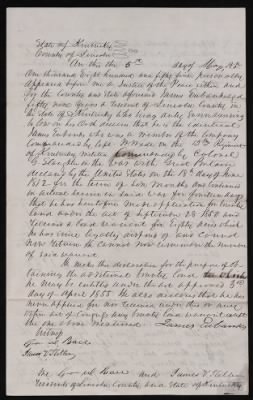 State of Kentucky
County of Lincoln
On this the 5th day of May, AD.
One thousand Eight hundred and fifty five personally
Appeared before me a Justice of the Peace within and
for the County and State aforesaid James Eubanks aged
fifty nine years a resident of Lincoln County in
the State of Kentucky who being duly sworn according
to law on his oath declares that he is the identical
James Eubanks who was a member of the Company
Commanded by Capt Wade in the 13th Regiment
of Kentucky militia commanded by Colonel
G. Slaughter in the War with Great Britain
declared by the United States on the 18th day of June
1812 for the term of Six Months and continued
in actual service in said War for fourteen days
that he has heretofore made application for bounty
land under the act of September 28 1850 and
received a land warrant for Eighty acres which
he has since legally disposed of and cannot
now return he cannot now remember the number
of said warrant
He makes this declaration for the purpose of ob-
taining the additional bounty land to which
he may be entitled under the act approved 3rd
day of April 1855. He also declares that he has
never applied for nor received under this or any
other act of Congress any bounty land warrant except
the one above mentioned James Eubanks
James V. Fletcher
We and James V. Fletcher
residents of Lincoln County in the State of Kentucky